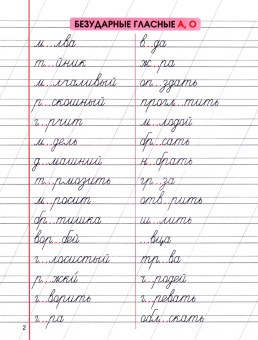 БЕЗУДАРНЫЕ ГЛАСНЫЕ А, О
м...лва
т...йник
м...лчаливый
р...скошный
г...рчит
м...дель
д...машний
т...рмозить
м...росит
бр...тишка
вор...бей
г...лосистый
р...жки́
г...ворить
г...ра
в...да
ж...ра
оп...здать
прогл...тить
м...лодой
бр...сать
н...брать
гр...за
отв...рить
ш...лить
...вца
тр...ва
ч...родей
г...ревать
обл...скать
2